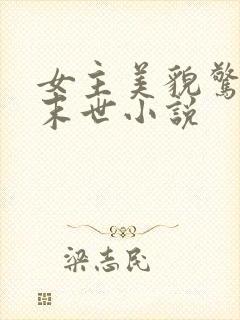 女主美貌驚
末世小說
梁志民